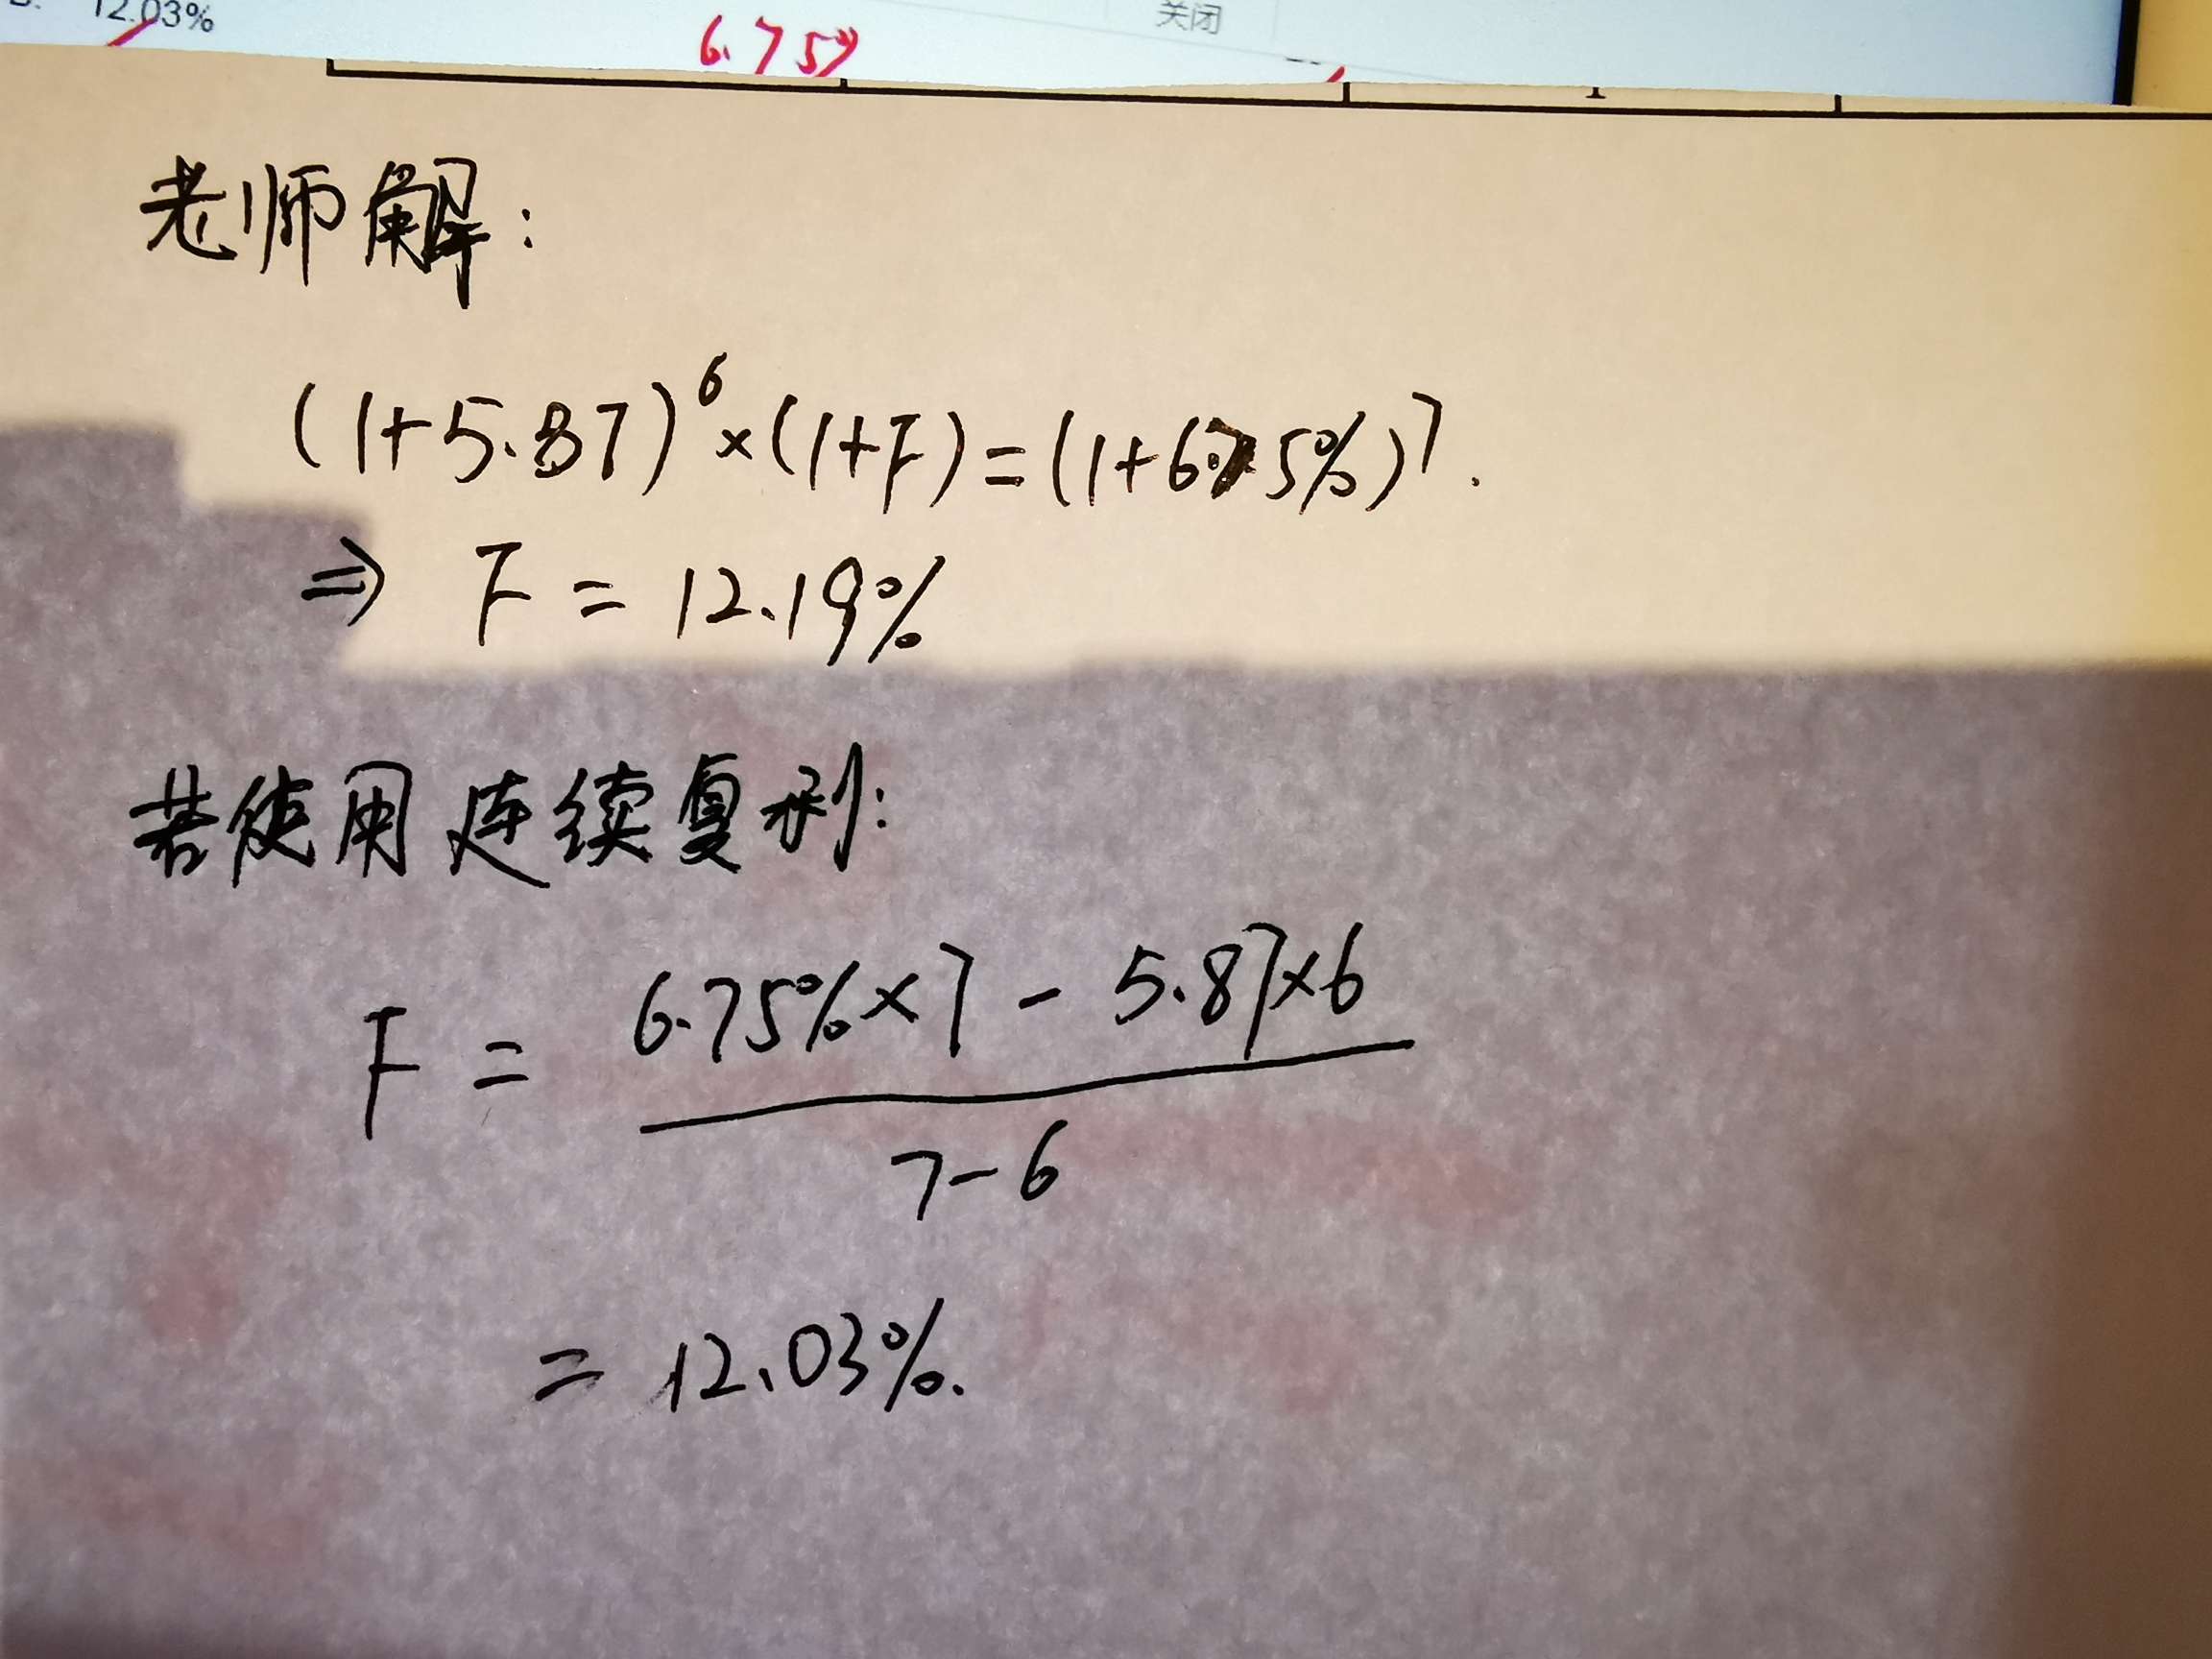 12.03%
关闭
6.75%
老师解：
(1+5.87)⁶×(1+F)=(1+6.75%)⁷.
⇒ F = 12.19%
若使用连续复利：
F = 6.75%×7 - 5.87×6
7-6
= 12.03%.